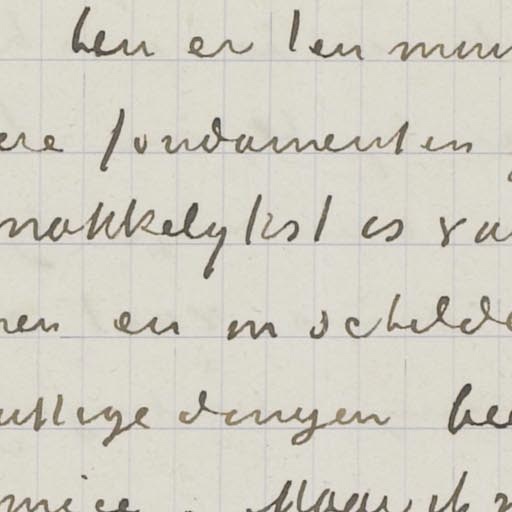 ben er ten min
ere fondamenten
makkelykst is va
ren en in schilde
uttige dingen bee
Maar ik